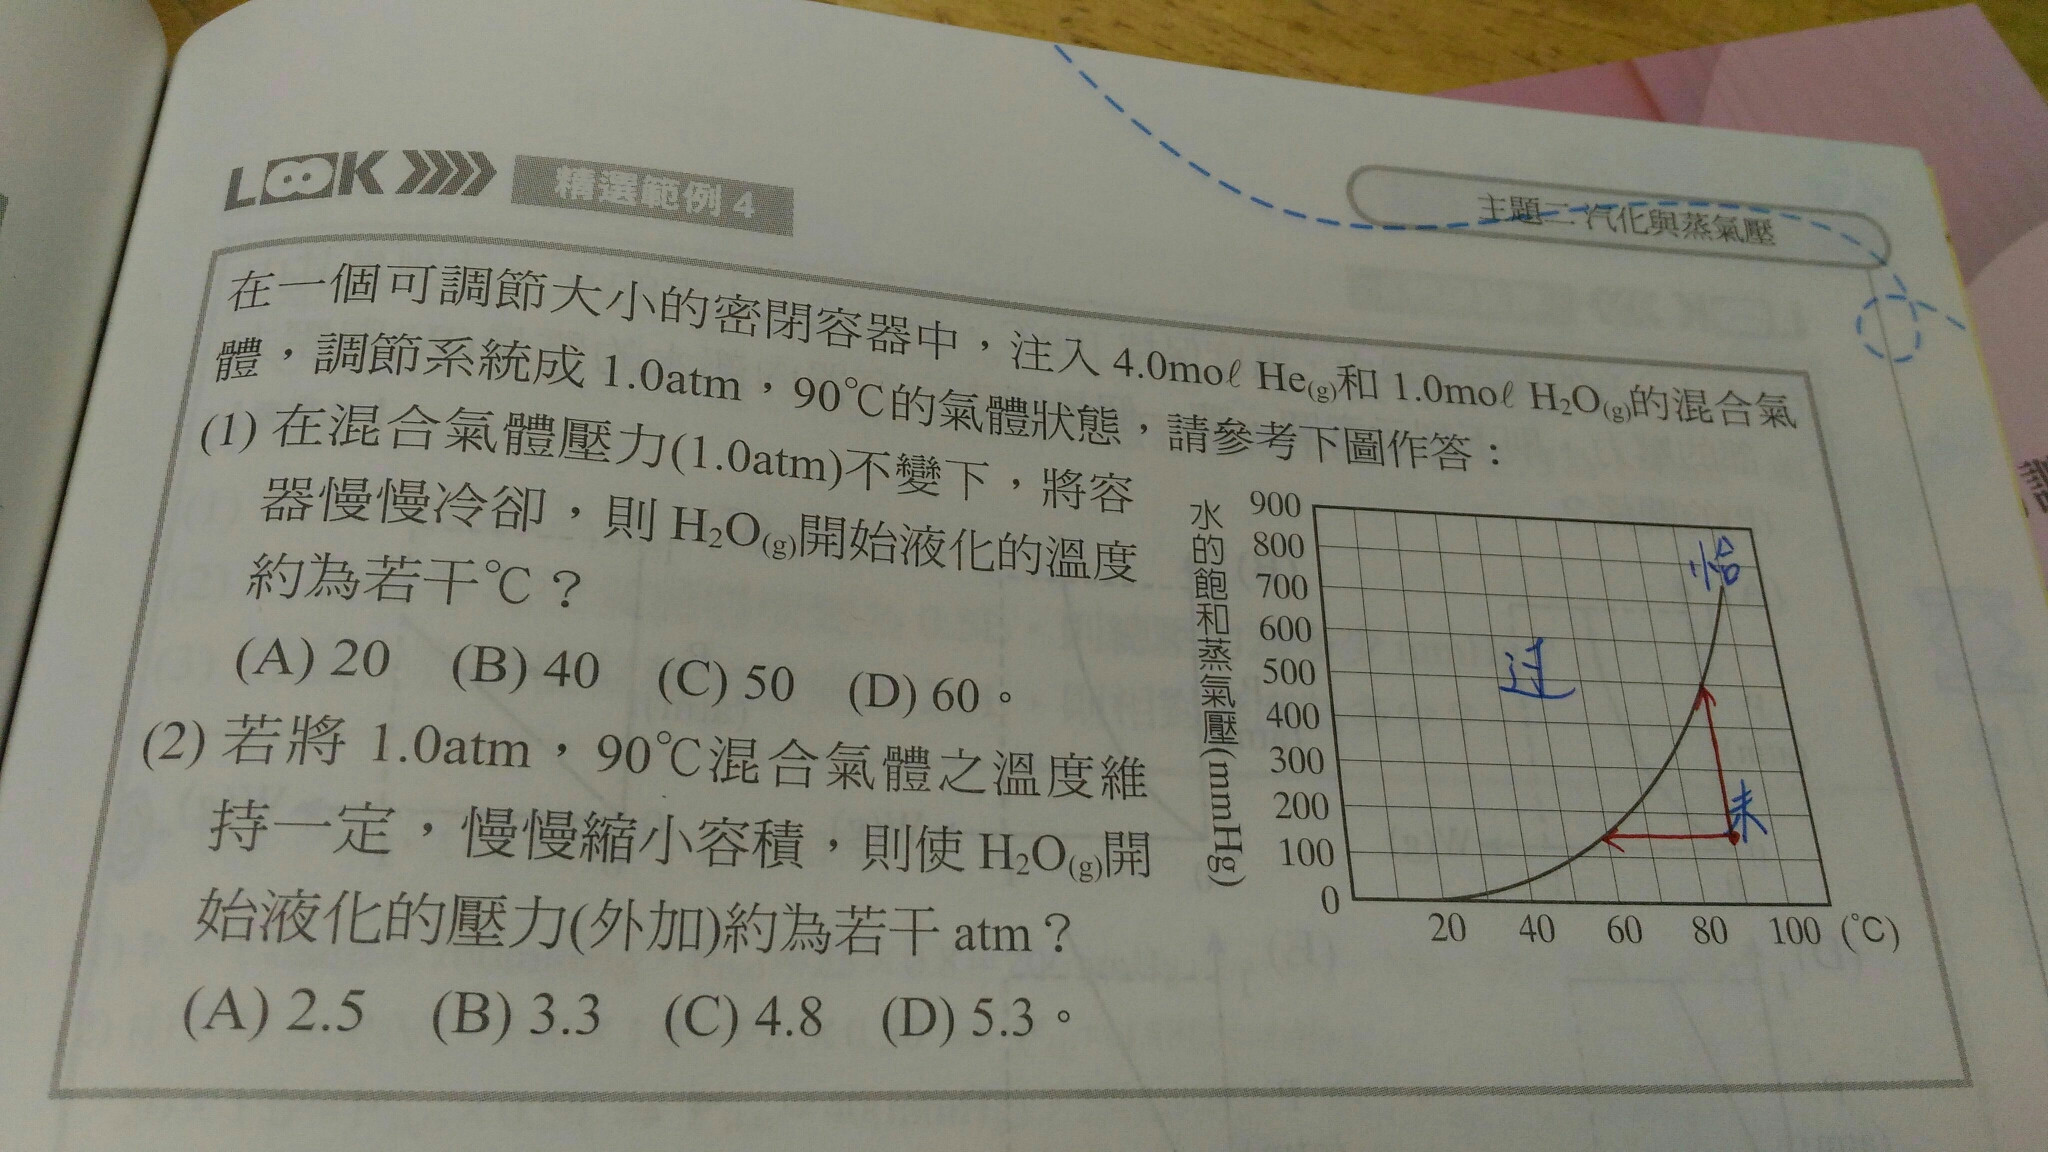 LOOK 精選範例 4
主題二 汽化與蒸氣壓
在一個可調節大小的密閉容器中，注入 4.0moℓ He(g)和 1.0moℓ H₂O(g)的混合氣
體，調節系統成 1.0atm，90℃的氣體狀態，請參考下圖作答：
(1) 在混合氣體壓力(1.0atm)不變下，將容
器慢慢冷卻，則 H₂O(g)開始液化的溫度
約為若干℃？
(A) 20 (B) 40 (C) 50 (D) 60。
(2) 若將 1.0atm，90℃混合氣體之溫度維
持一定，慢慢縮小容積，則使 H₂O(g)開
始液化的壓力(外加)約為若干 atm？
(A) 2.5 (B) 3.3 (C) 4.8 (D) 5.3。
水的飽和蒸氣壓(mmHg)
900
800
700
600
500
400
300
200
100
0
20 40 60 80 100 (℃)
恰
过
未